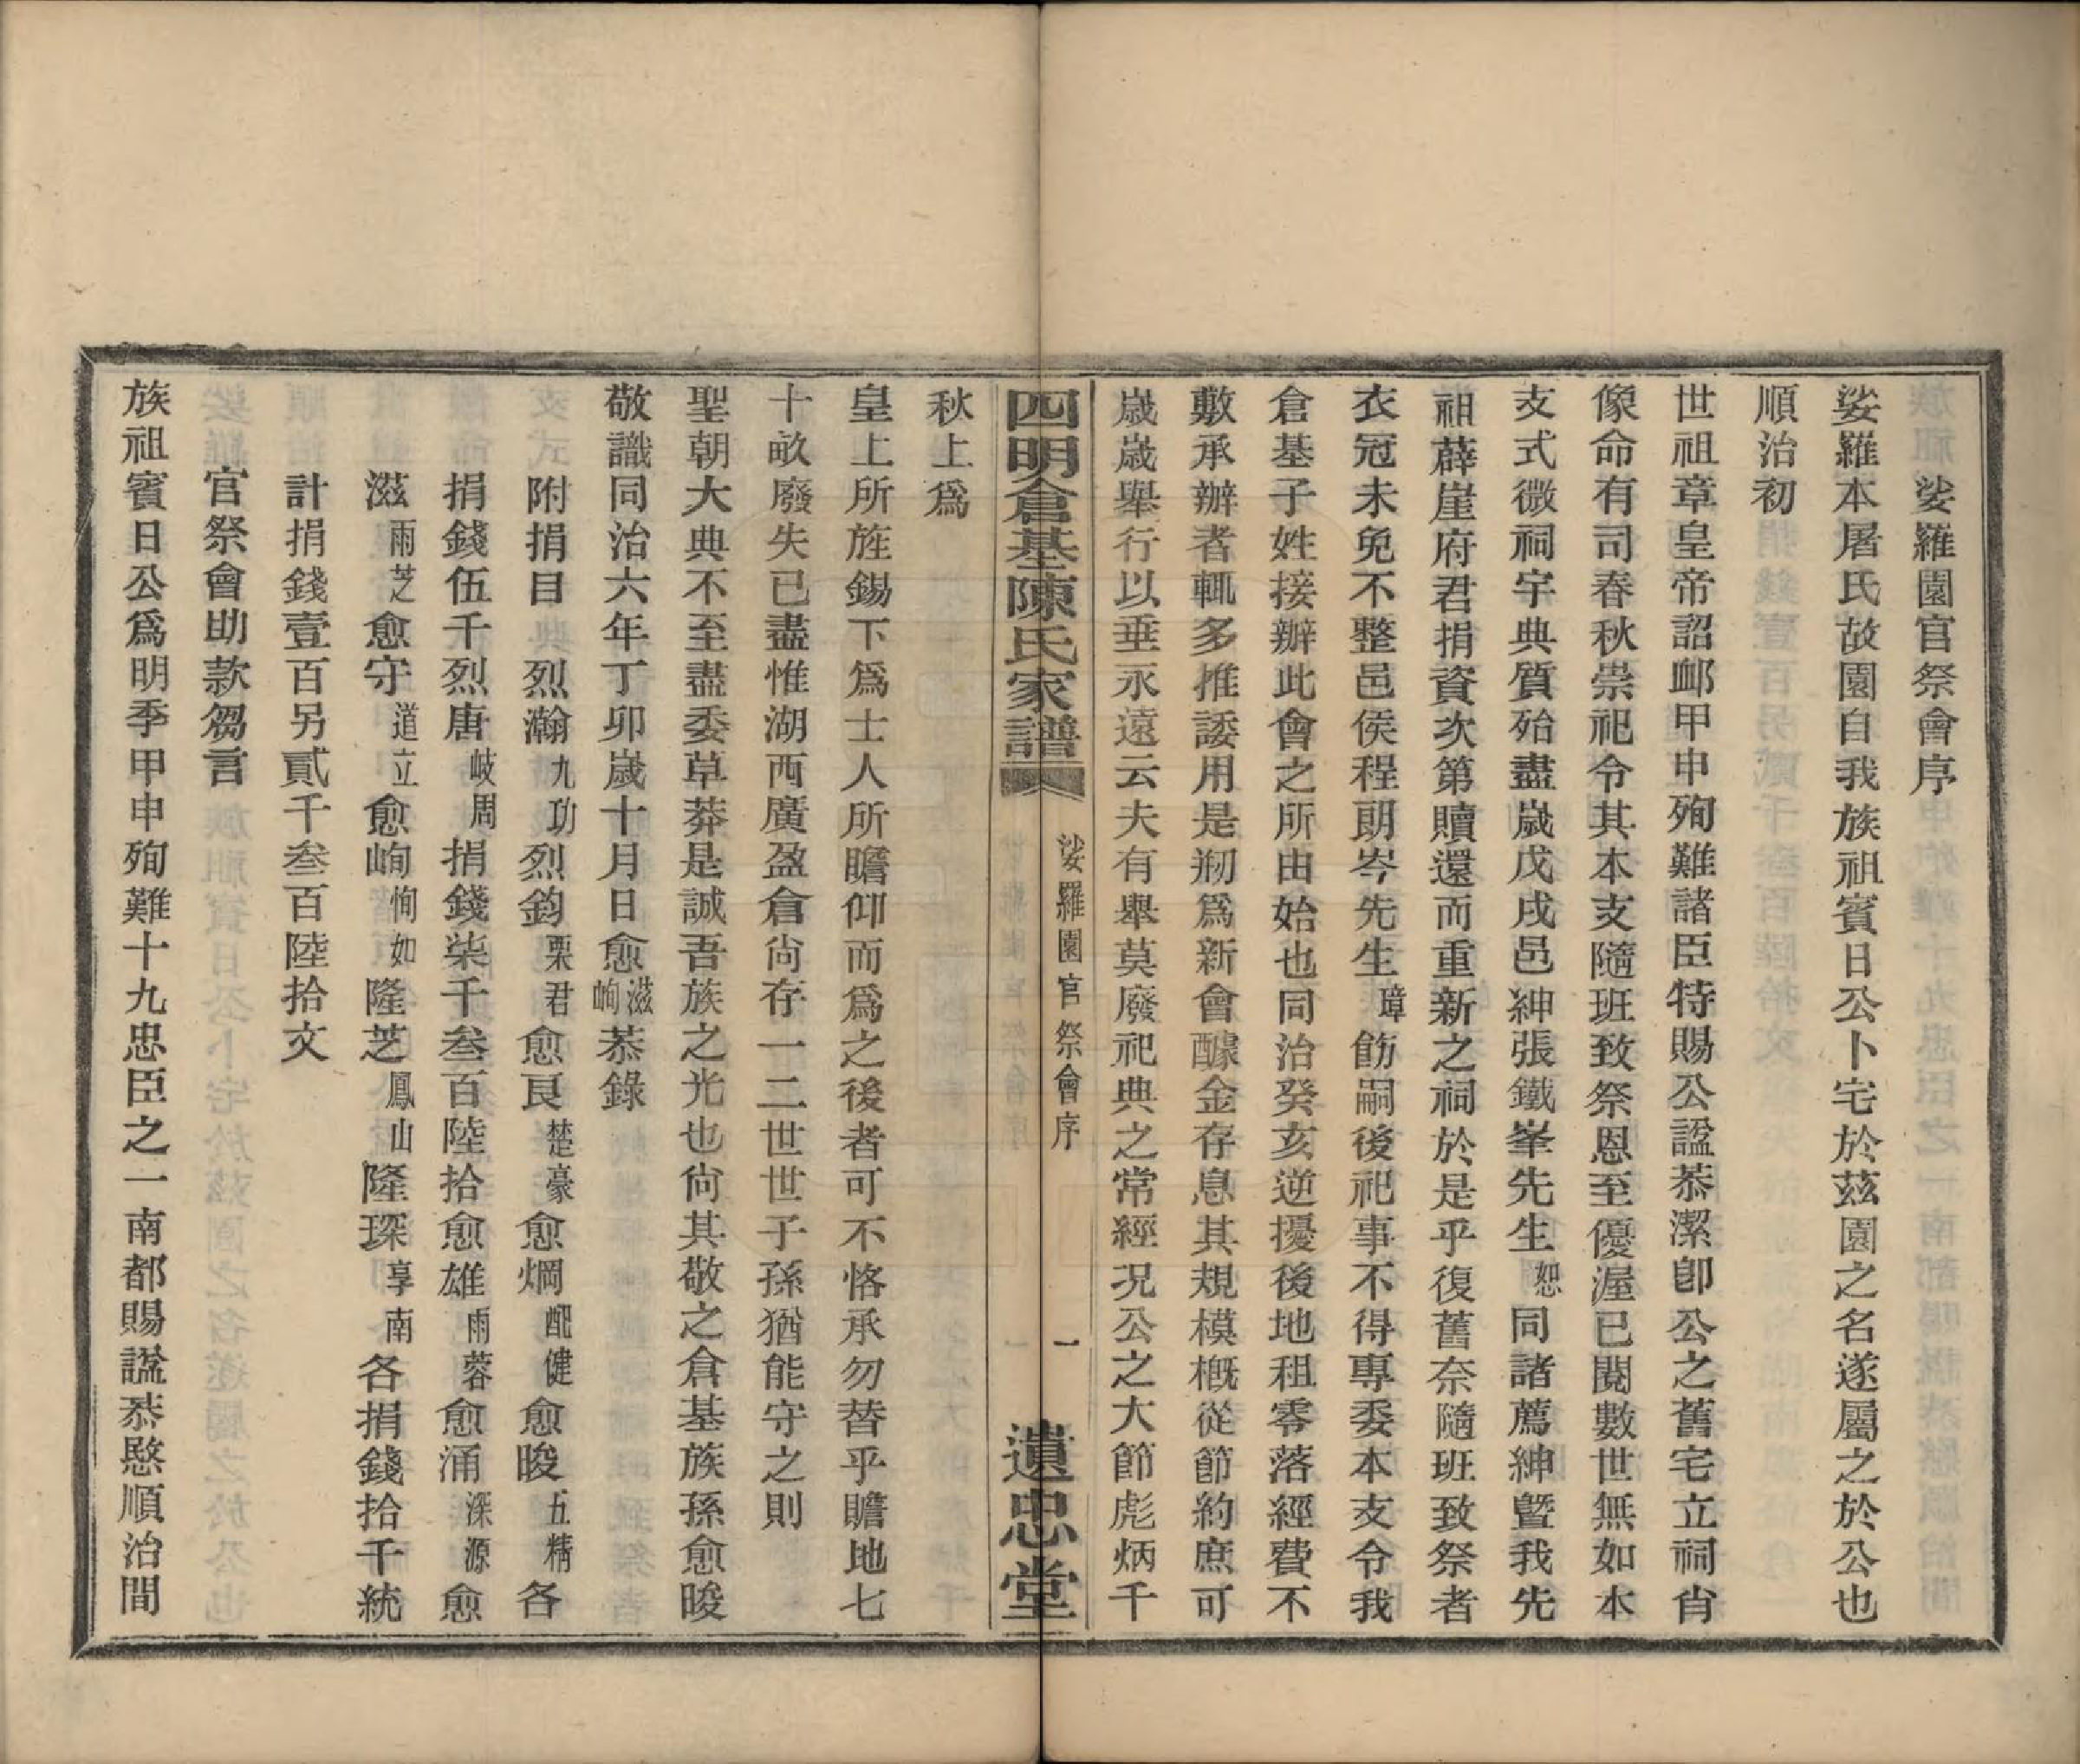 娑羅園官祭會序
娑羅本屠氏故園自我族祖賓日公卜宅於茲園之名遂屬之於公也
順治初
世祖章皇帝詔䘏甲申殉難諸臣特賜公諡恭潔卽公之舊宅立祠肖
像命有司春秋崇祀令其本支隨班致祭恩至優渥已閱數世無如本
支式微祠宇典質殆盡歲戊戌邑紳張鐵峯先生恕同諸薦紳曁我先
祖薜崖府君捐資次第贖還而重新之祠於是乎復舊奈隨班致祭者
衣冠未免不整邑侯程朗岑先生璋飭嗣後祀事不得專委本支令我
倉基子姓接辦此會之所由始也同治癸亥逆擾後地租零落經費不
敷承辦者輒多推諉用是剏爲新會醵金存息其規模槪從節約庶可
歲歲舉行以垂永遠云夫有舉莫廢祀典之常經况公之大節彪炳千
四明倉基陳氏家譜 娑羅園官祭會序 一 遺忠堂
秋上爲
皇上所旌錫下爲士人所瞻仰而爲之後者可不恪承勿替乎贍地七
十畝廢失已盡惟湖西廣盈倉尙存一二世世子孫猶能守之則
聖朝大典不至盡委草莽是誠吾族之光也尙其敬之倉基族孫愈晙
敬識同治六年丁卯歲十月日愈滋峋恭錄
附捐目 烈瀚九功烈鈞栗君愈艮楚豪愈烱酏健愈晙五精各
捐錢伍千烈唐岐周捐錢柒千叁百陸拾愈雄雨蓉愈涌深源愈
滋雨芝愈守道立愈峋恂如隆芝鳳山隆琛享南各捐錢拾千統
計捐錢壹百另貳千叁百陸拾文
官祭會助款芻言
族祖賓日公爲明季甲申殉難十九忠臣之一南都賜諡恭愍順治間